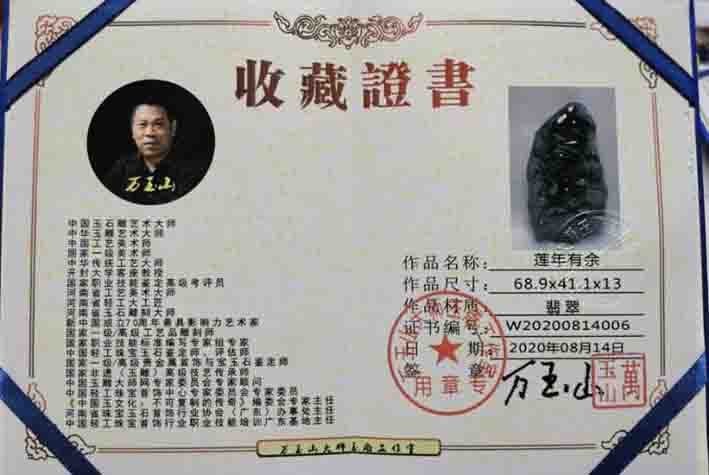 收藏證書
万玉山
中国玉石雕艺术大师
中华玉雕艺术大师
中国工艺美术师
国家一级美术师
中华传统工艺大师
开封大学客座教授
国家职业技能鉴定高级考评员
河南省工艺美术大师
河南省轻工大工匠
河南省玉石雕刻大师
新中国成立70周年最具影响力艺术家
国家一级/高级工艺品雕刻师
国家职业技能标准编写专家组专家
中国轻工珠宝玉石鉴定师、评估师
国家一级/高级贵金属首饰与宝玉石鉴定师
国家非遗（玉雕）高级技艺传承师
中国玉雕大师网专家委员会专家顾问
中国轻工珠宝首饰中心专家委员会专家委员
《中国玉文化，不可复制的传奇》编委会专家主任
河南省珠宝玉石首饰行业协会（广东）办事处主任
中国轻工珠宝首饰行业职业技能培训广东基地主任
作品名称： 莲年有余
作品尺寸： 68.9x41.1x13
作品材质： 翡翠
证书编号： W20200814006
日 期： 2020年08月14日
签 章： 万玉山
萬玉山
用章专
万玉山大师玉雕工作室